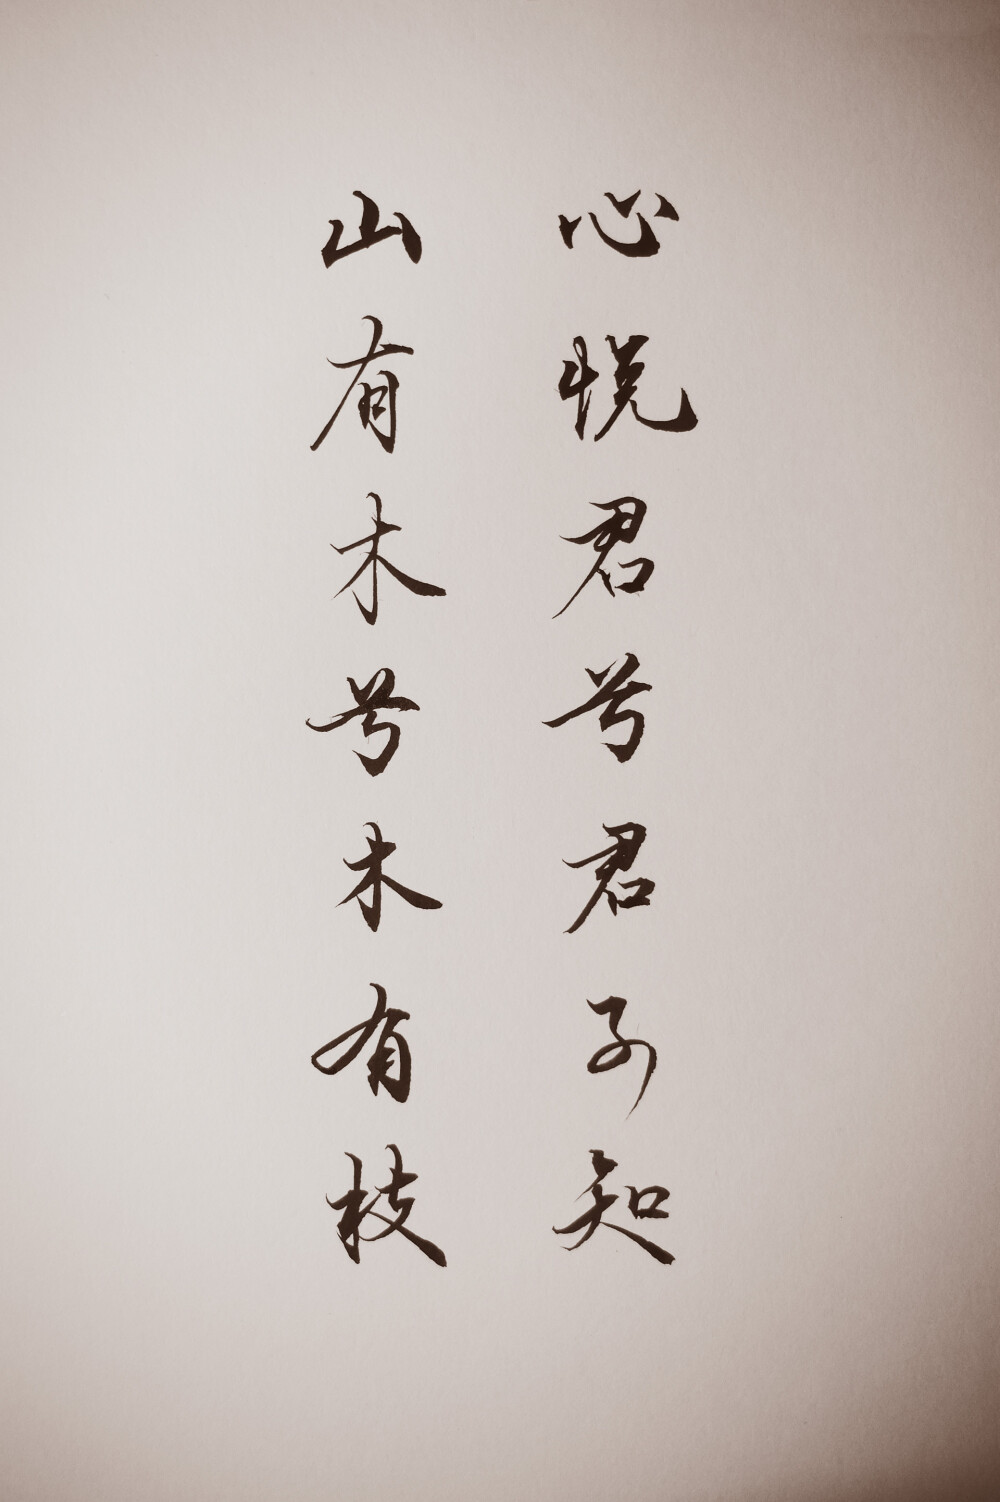 心悦君兮君子知
山有木兮木有枝